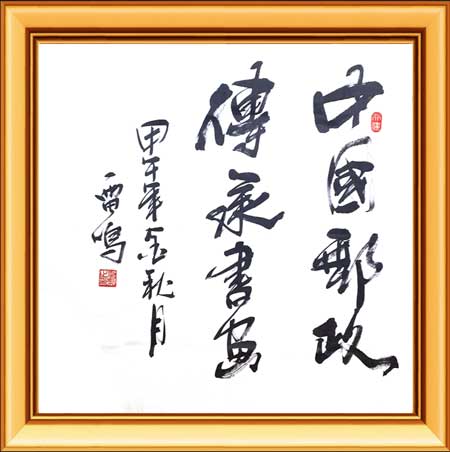 中國郵政
傳承書画
甲午年金秋月
雷鳴